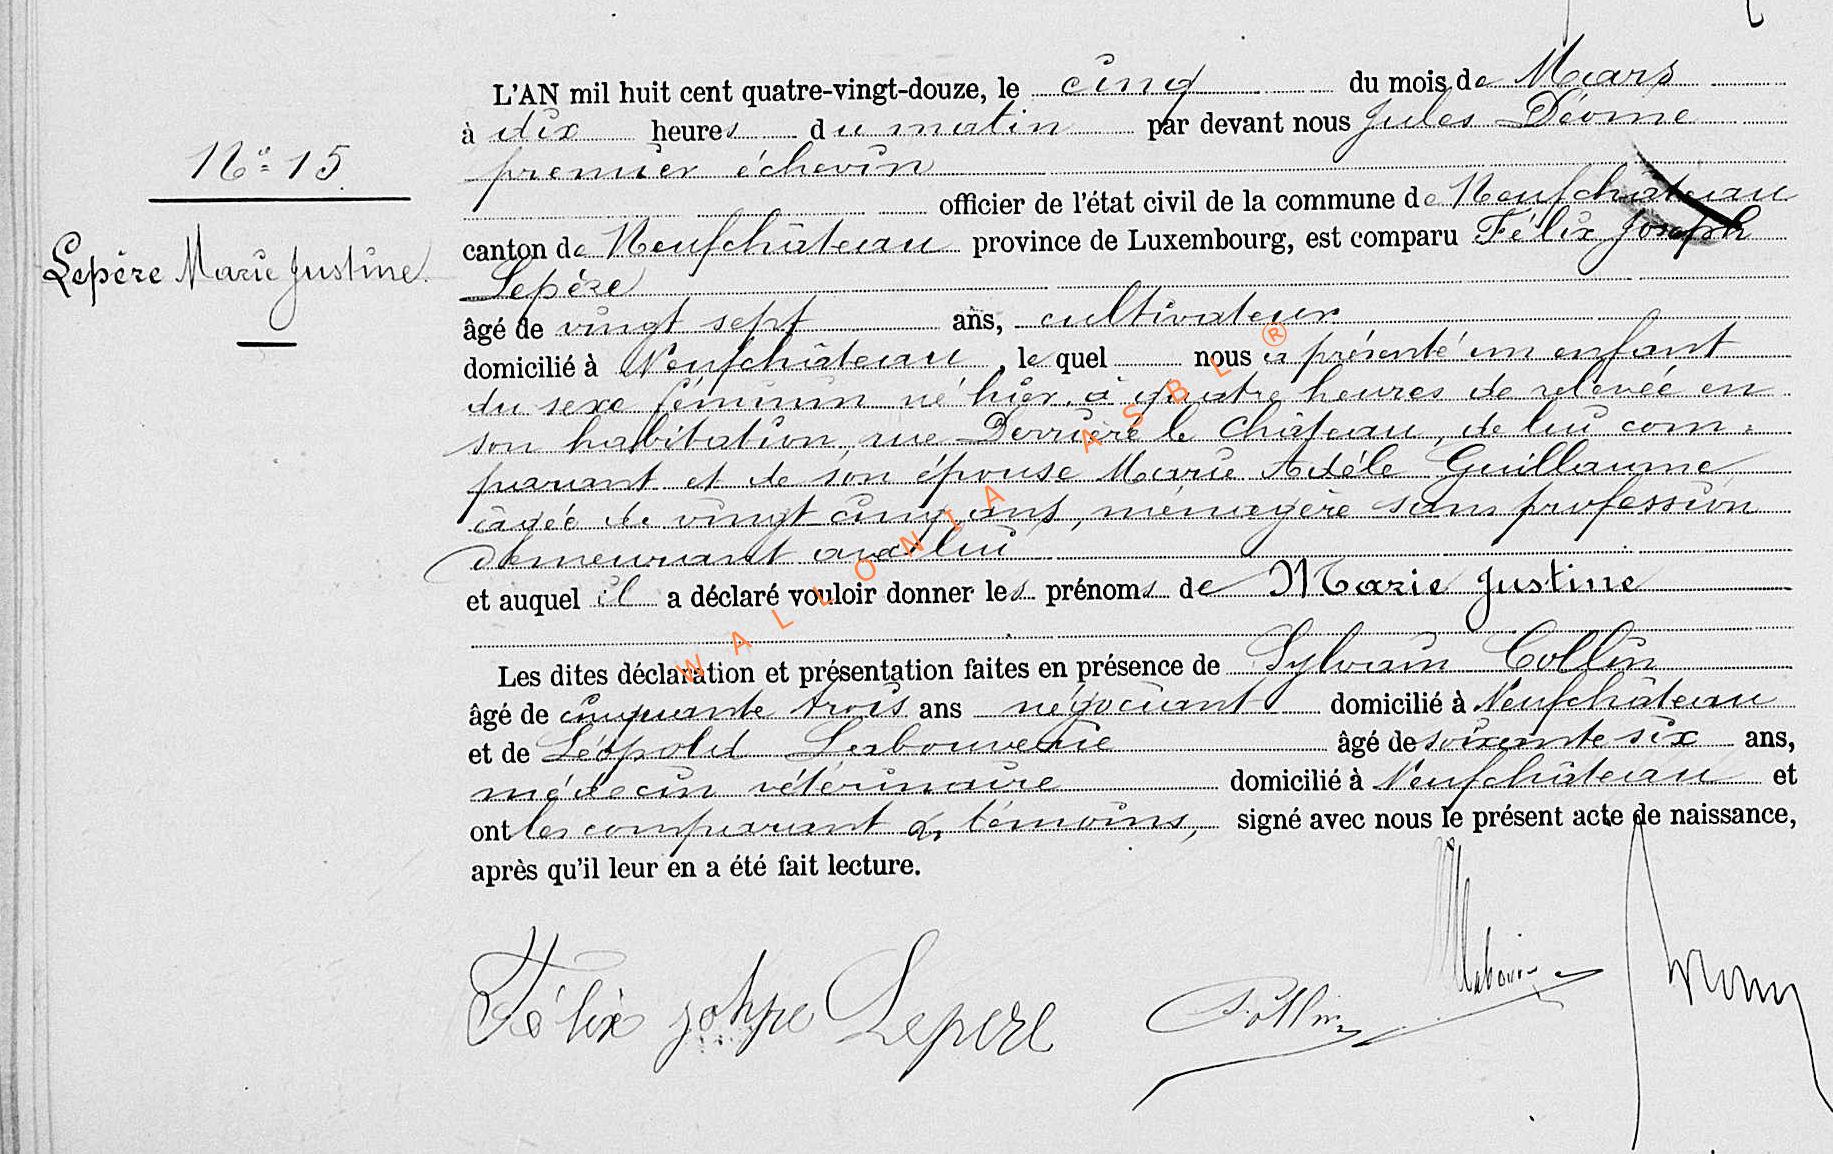 L'AN mil huit cent quatre-vingt-douze, le cinq du mois de Mars
à dix heures du matin par devant nous Jules Déome
premier échevin
officier de l'état civil de la commune de Neufchateau
canton de Neufchâteau province de Luxembourg, est comparu Félix Joseph
Lepère
âgé de vingt sept ans, cultivateur
domicilié à Neufchâteau, lequel nous a présenté un enfant
du sexe féminin né hier, à quatre heures de relevée en
son habitation, rue Derrière le Château, de lui com=
parant et de son épouse Marie Adèle Guillaume
âgée de vingt cinq ans, ménagère sans profession
demeurant avec lui
et auquel il a déclaré vouloir donner les prénoms de Marie Justine
Les dites déclaration et présentation faites en présence de Sylvain Collin
âgé de cinquante trois ans négociant domicilié à Neufchâteau
et de Léopold âgé de soixante six ans,
médecin vétérinaire domicilié à Neufchâteau et
ont les comparant & témoins, signé avec nous le présent acte de naissance,
après qu'il leur en a été fait lecture.
N° 15
Lepère Marie Justine.
WALLONIA ASBL ®
Félix johpe Lepere
Collin